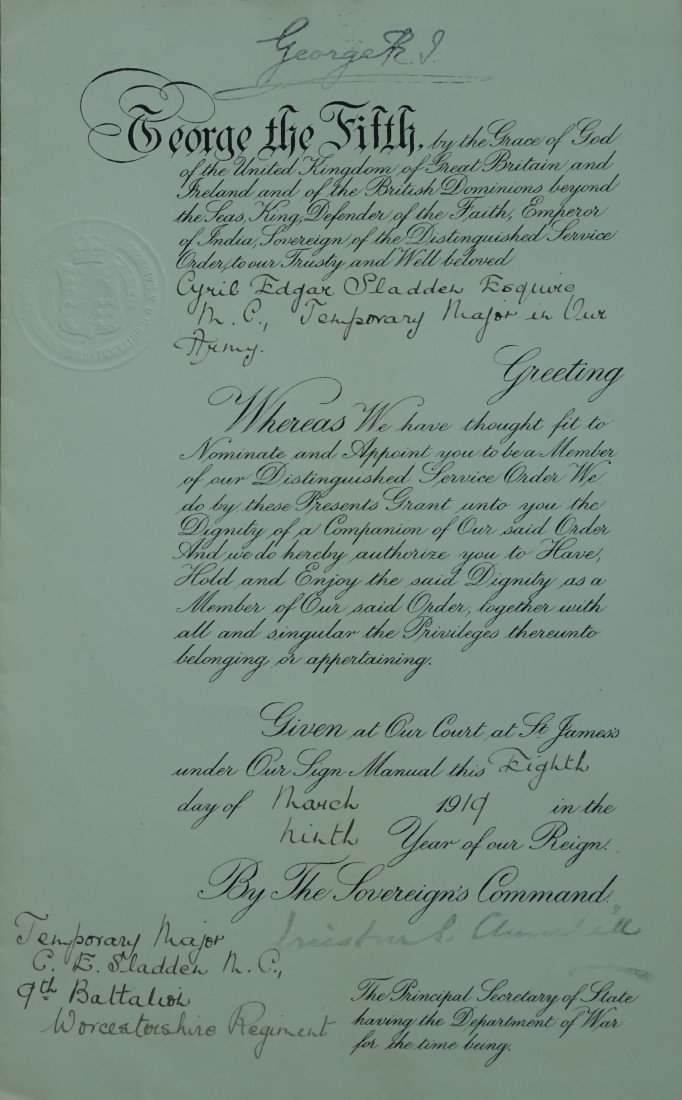 George R. I.
George the Fifth, by the Grace of God
of the United Kingdom of Great Britain and
Ireland and of the British Dominions beyond
the Seas, King, Defender of the Faith, Emperor
of India, Sovereign of the Distinguished Service
Order, to our Trusty and Well beloved
Cyril Edgar Sladden Esquire
M. C., Temporary Major in Our
Army.
Greeting
Whereas We have thought fit to
Nominate and Appoint you to be a Member
of our Distinguished Service Order We
do by these Presents Grant unto you the
Dignity of a Companion of Our said Order
And we do hereby authorize you to Have,
Hold and Enjoy the said Dignity as a
Member of Our said Order, together with
all and singular the Privileges thereunto
belonging or appertaining.
Given at Our Court at St. James's
under Our Sign Manual this Eighth
day of March 1919 in the
ninth Year of our Reign.
By The Sovereign's Command.
Winston S. Churchill
Temporary Major
C. E. Sladden M. C.,
9th Battalion
Worcestershire Regiment
The Principal Secretary of State
having the Department of War
for the time being.